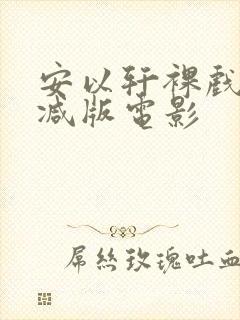 安以轩裸戲
减版電影
屌絲玫瑰吐血